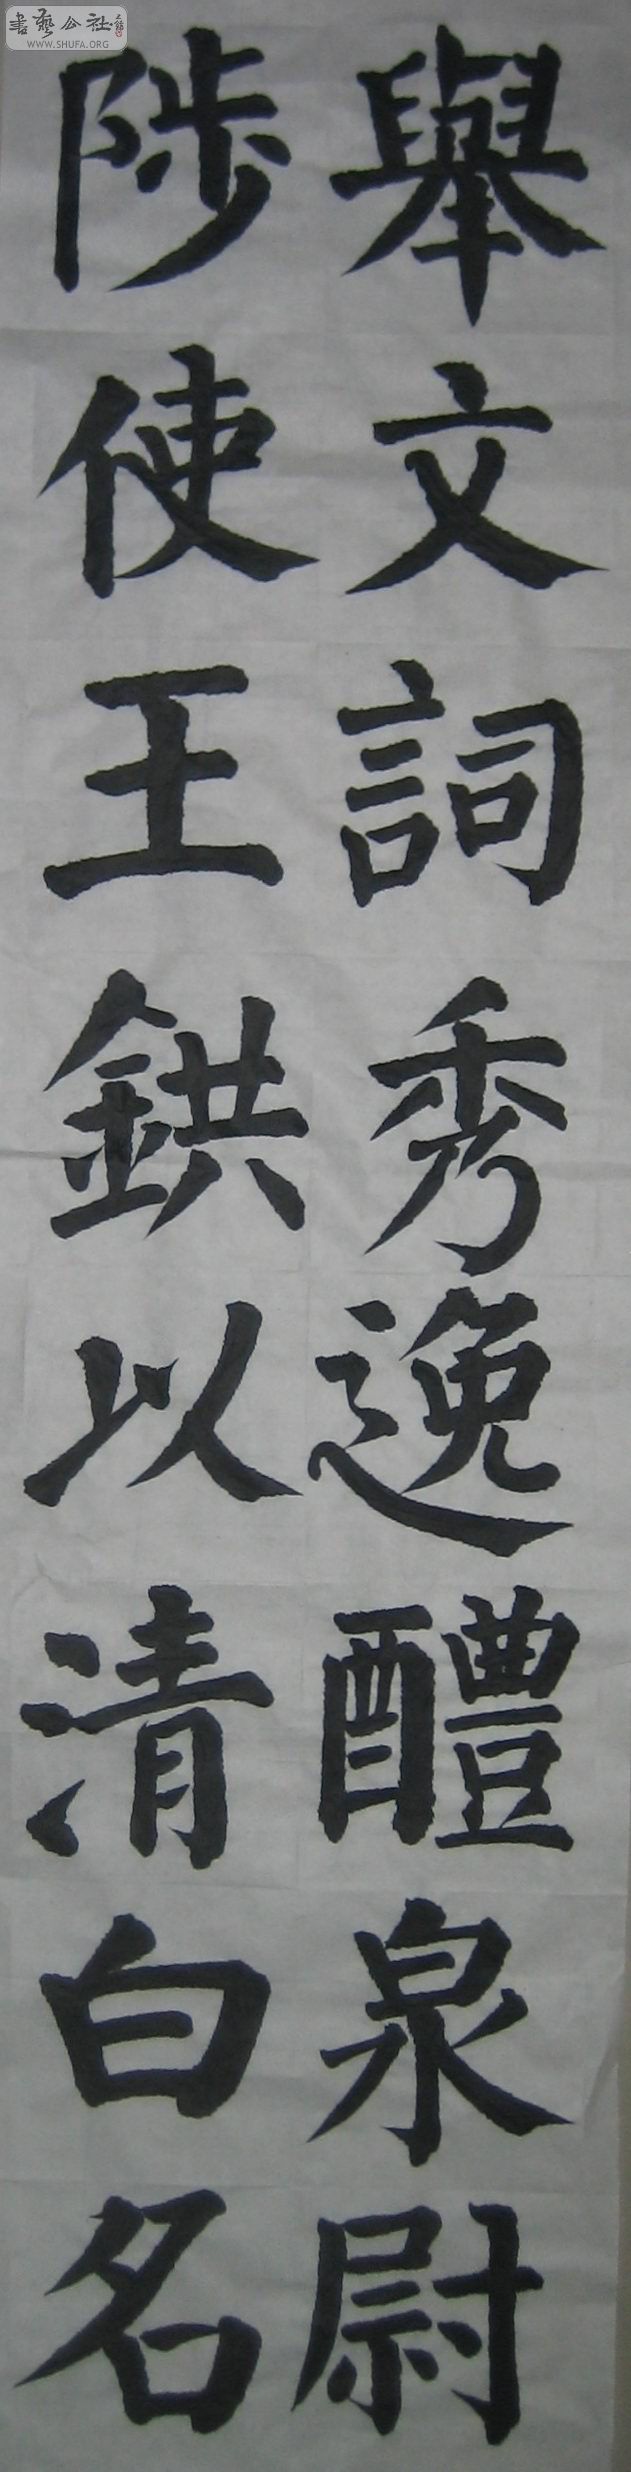 舉文詞秀逸醴泉尉
陟使王鉷以清白名
書藝公社
WWW.SHUFA.ORG